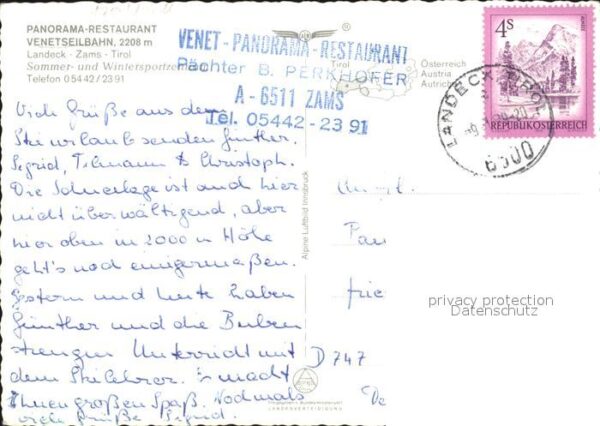 PANORAMA-RESTAURANT
VENETSEILBAHN, 2208 m
Landeck - Zams - Tirol
Sommer- und Wintersportzentrum
Telefon 0 54 42 / 23 91
VENET-PANORAMA-RESTAURANT
Pächter B. PERKHOFER
A - 6511 ZAMS
Tel. 05442 - 23 91
Österreich
Austria
Autriche
4S
REPUBLIK ÖSTERREICH
LANDECK, TIROL
6500
Viele Grüße aus dem
Skiurlaub senden Günther,
Sigrid, Tilmann & Christoph.
Die Schneelage ist auch hier
nicht überwältigend, aber
hier oben in 2000 m Höhe
geht's noch einigermaßen.
Gestern und heute haben
Günther und die Buben
strengen Unterricht mit
dem Skilehrer. Es macht
Ihnen großen Spaß. Nochmals
viele Grüße Sigrid.
Alpine Luftbild Innsbruck
LANDESVERTEIDIGUNG
Fam
frie
D 747
privacy protection
Datenschutz